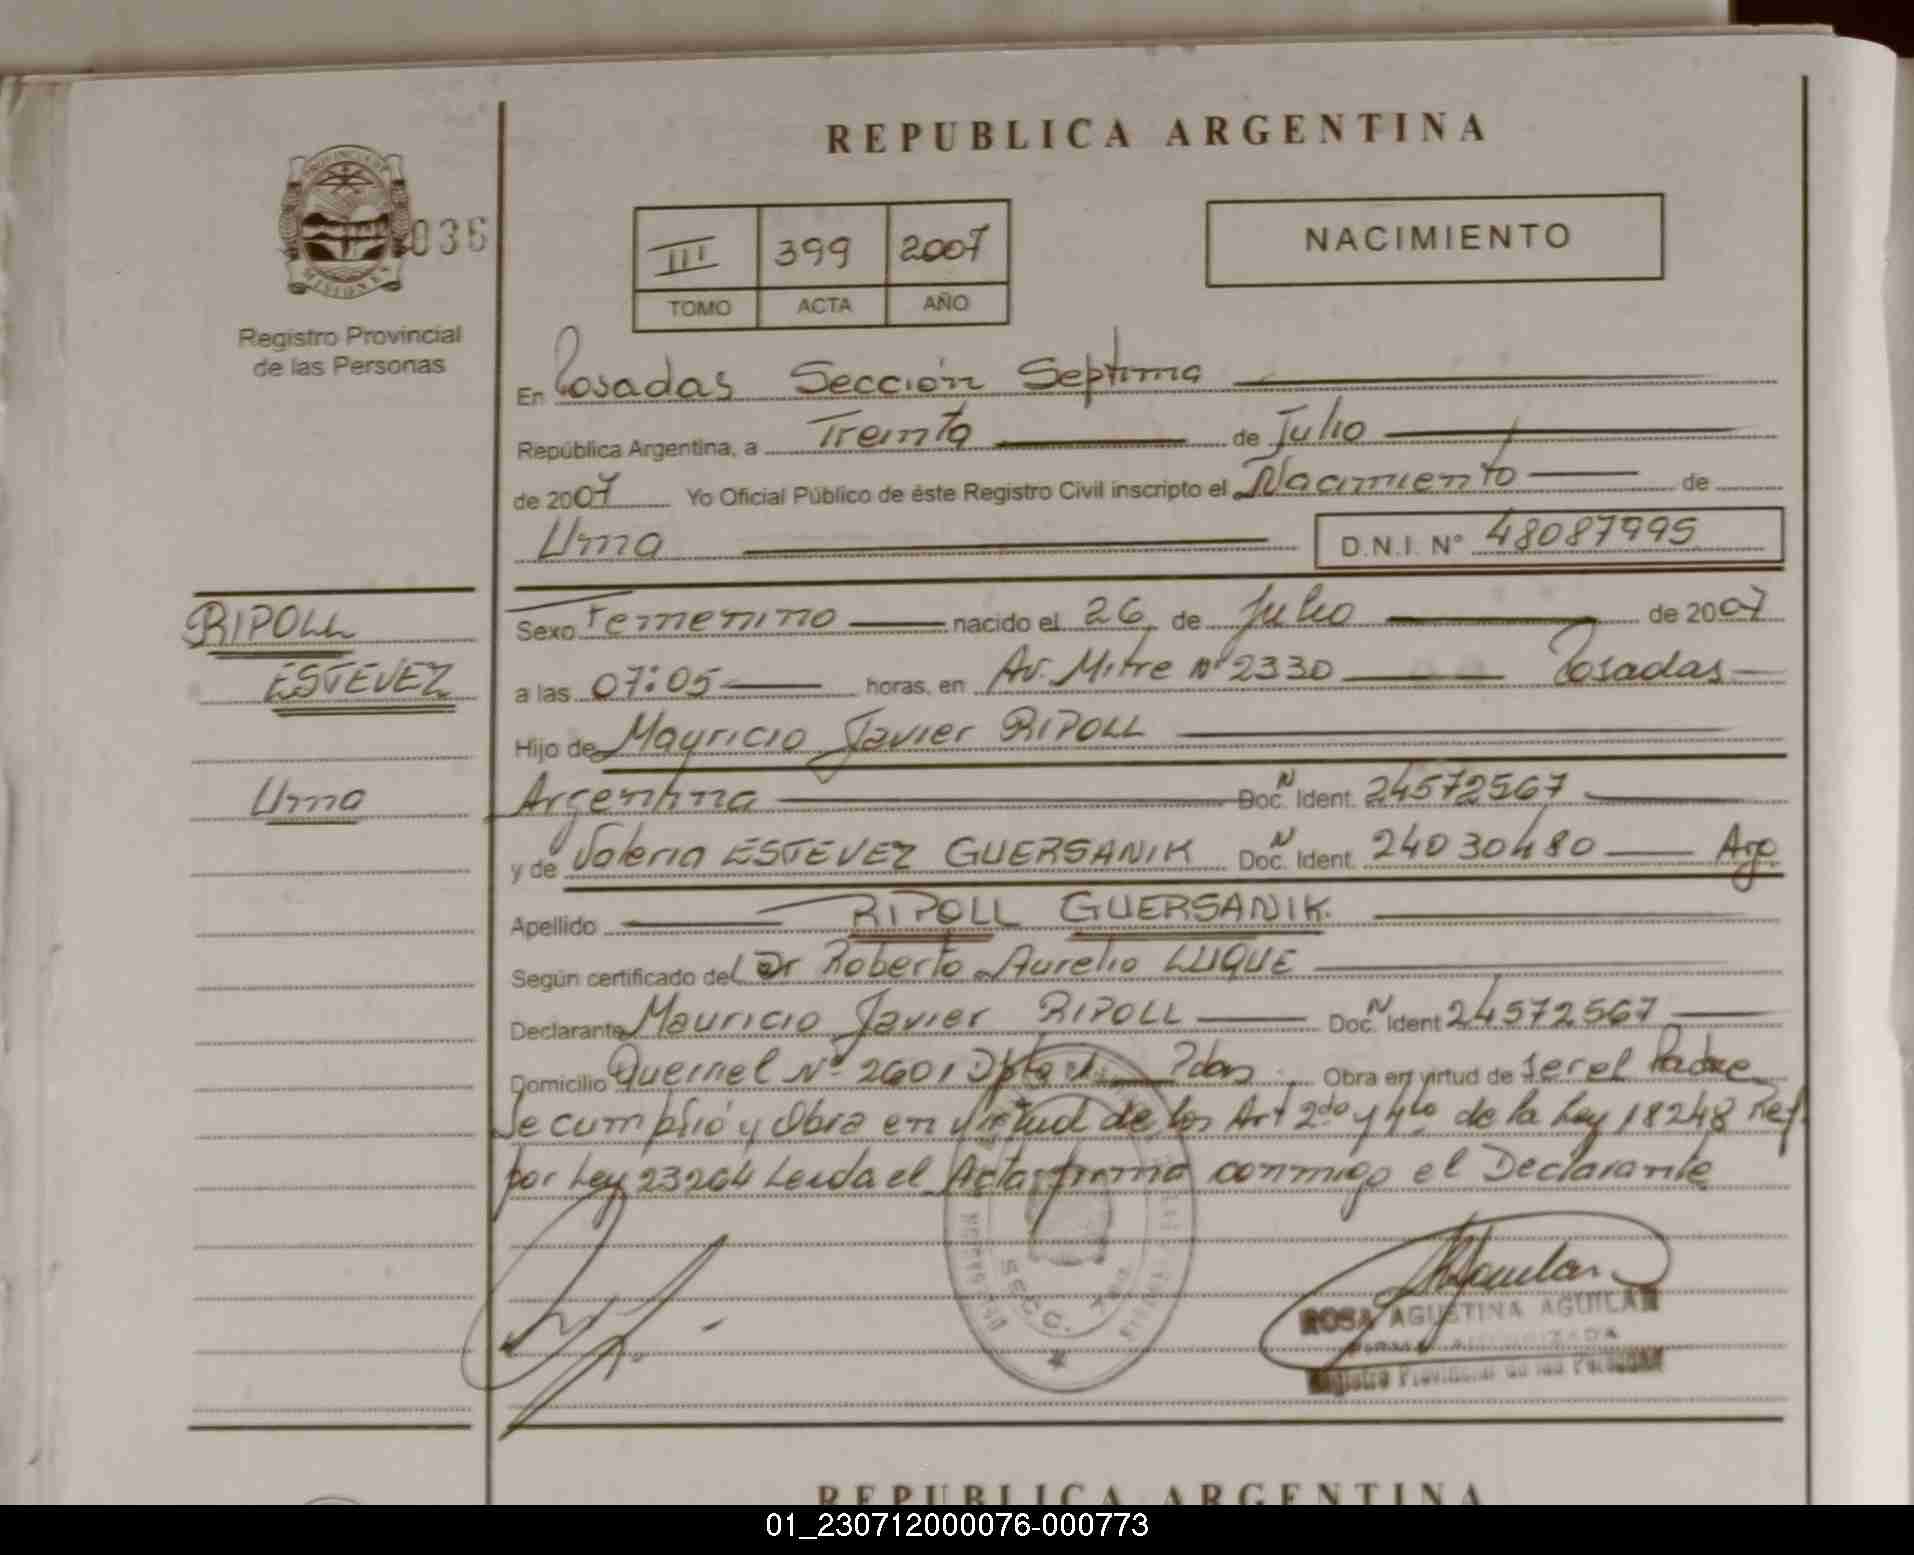 REPUBLICA ARGENTINA
PROVINCIA DE
MISIONES
036
Registro Provincial
de las Personas
III 399 2007
TOMO ACTA AÑO
NACIMIENTO
En Posadas Sección Septima
República Argentina, a Treinta de Julio
de 2007 Yo Oficial Público de éste Registro Civil inscripto el Nacimiento de
Uma D.N.I. Nº 48087995
RIPOLL
ESTEVEZ
Uma
Sexo Femenino nacido el 26 de Julio de 2007
a las 07:05 horas, en Av. Mitre Nº 2330 Posadas
Hijo de Mauricio Javier RIPOLL
Argentina Doc. N Ident. 24572567
y de Valeria ESTEVEZ GUERSANIK Doc. N Ident. 24030480 Arg.
Apellido RIPOLL GUERSANIK.
Según certificado del Dr Roberto Aurelio LUQUE
Declarante Mauricio Javier RIPOLL Doc. N Ident 24572567
Domicilio Nº 2601 Pdas Obra en virtud de ser el Padre
Se cumplió y Obra en virtud de los Art 2do y 4to de la Ley 18248 Ref.
por Ley 23264 Leida el Acta firma conmigo el Declarante
SECC. 7ma
ROSA AGUSTINA AGUILAR
FIRMA AUTORIZADA
Registro Provincial de las Personas
REPUBLICA ARGENTINA
01_230712000076-000773